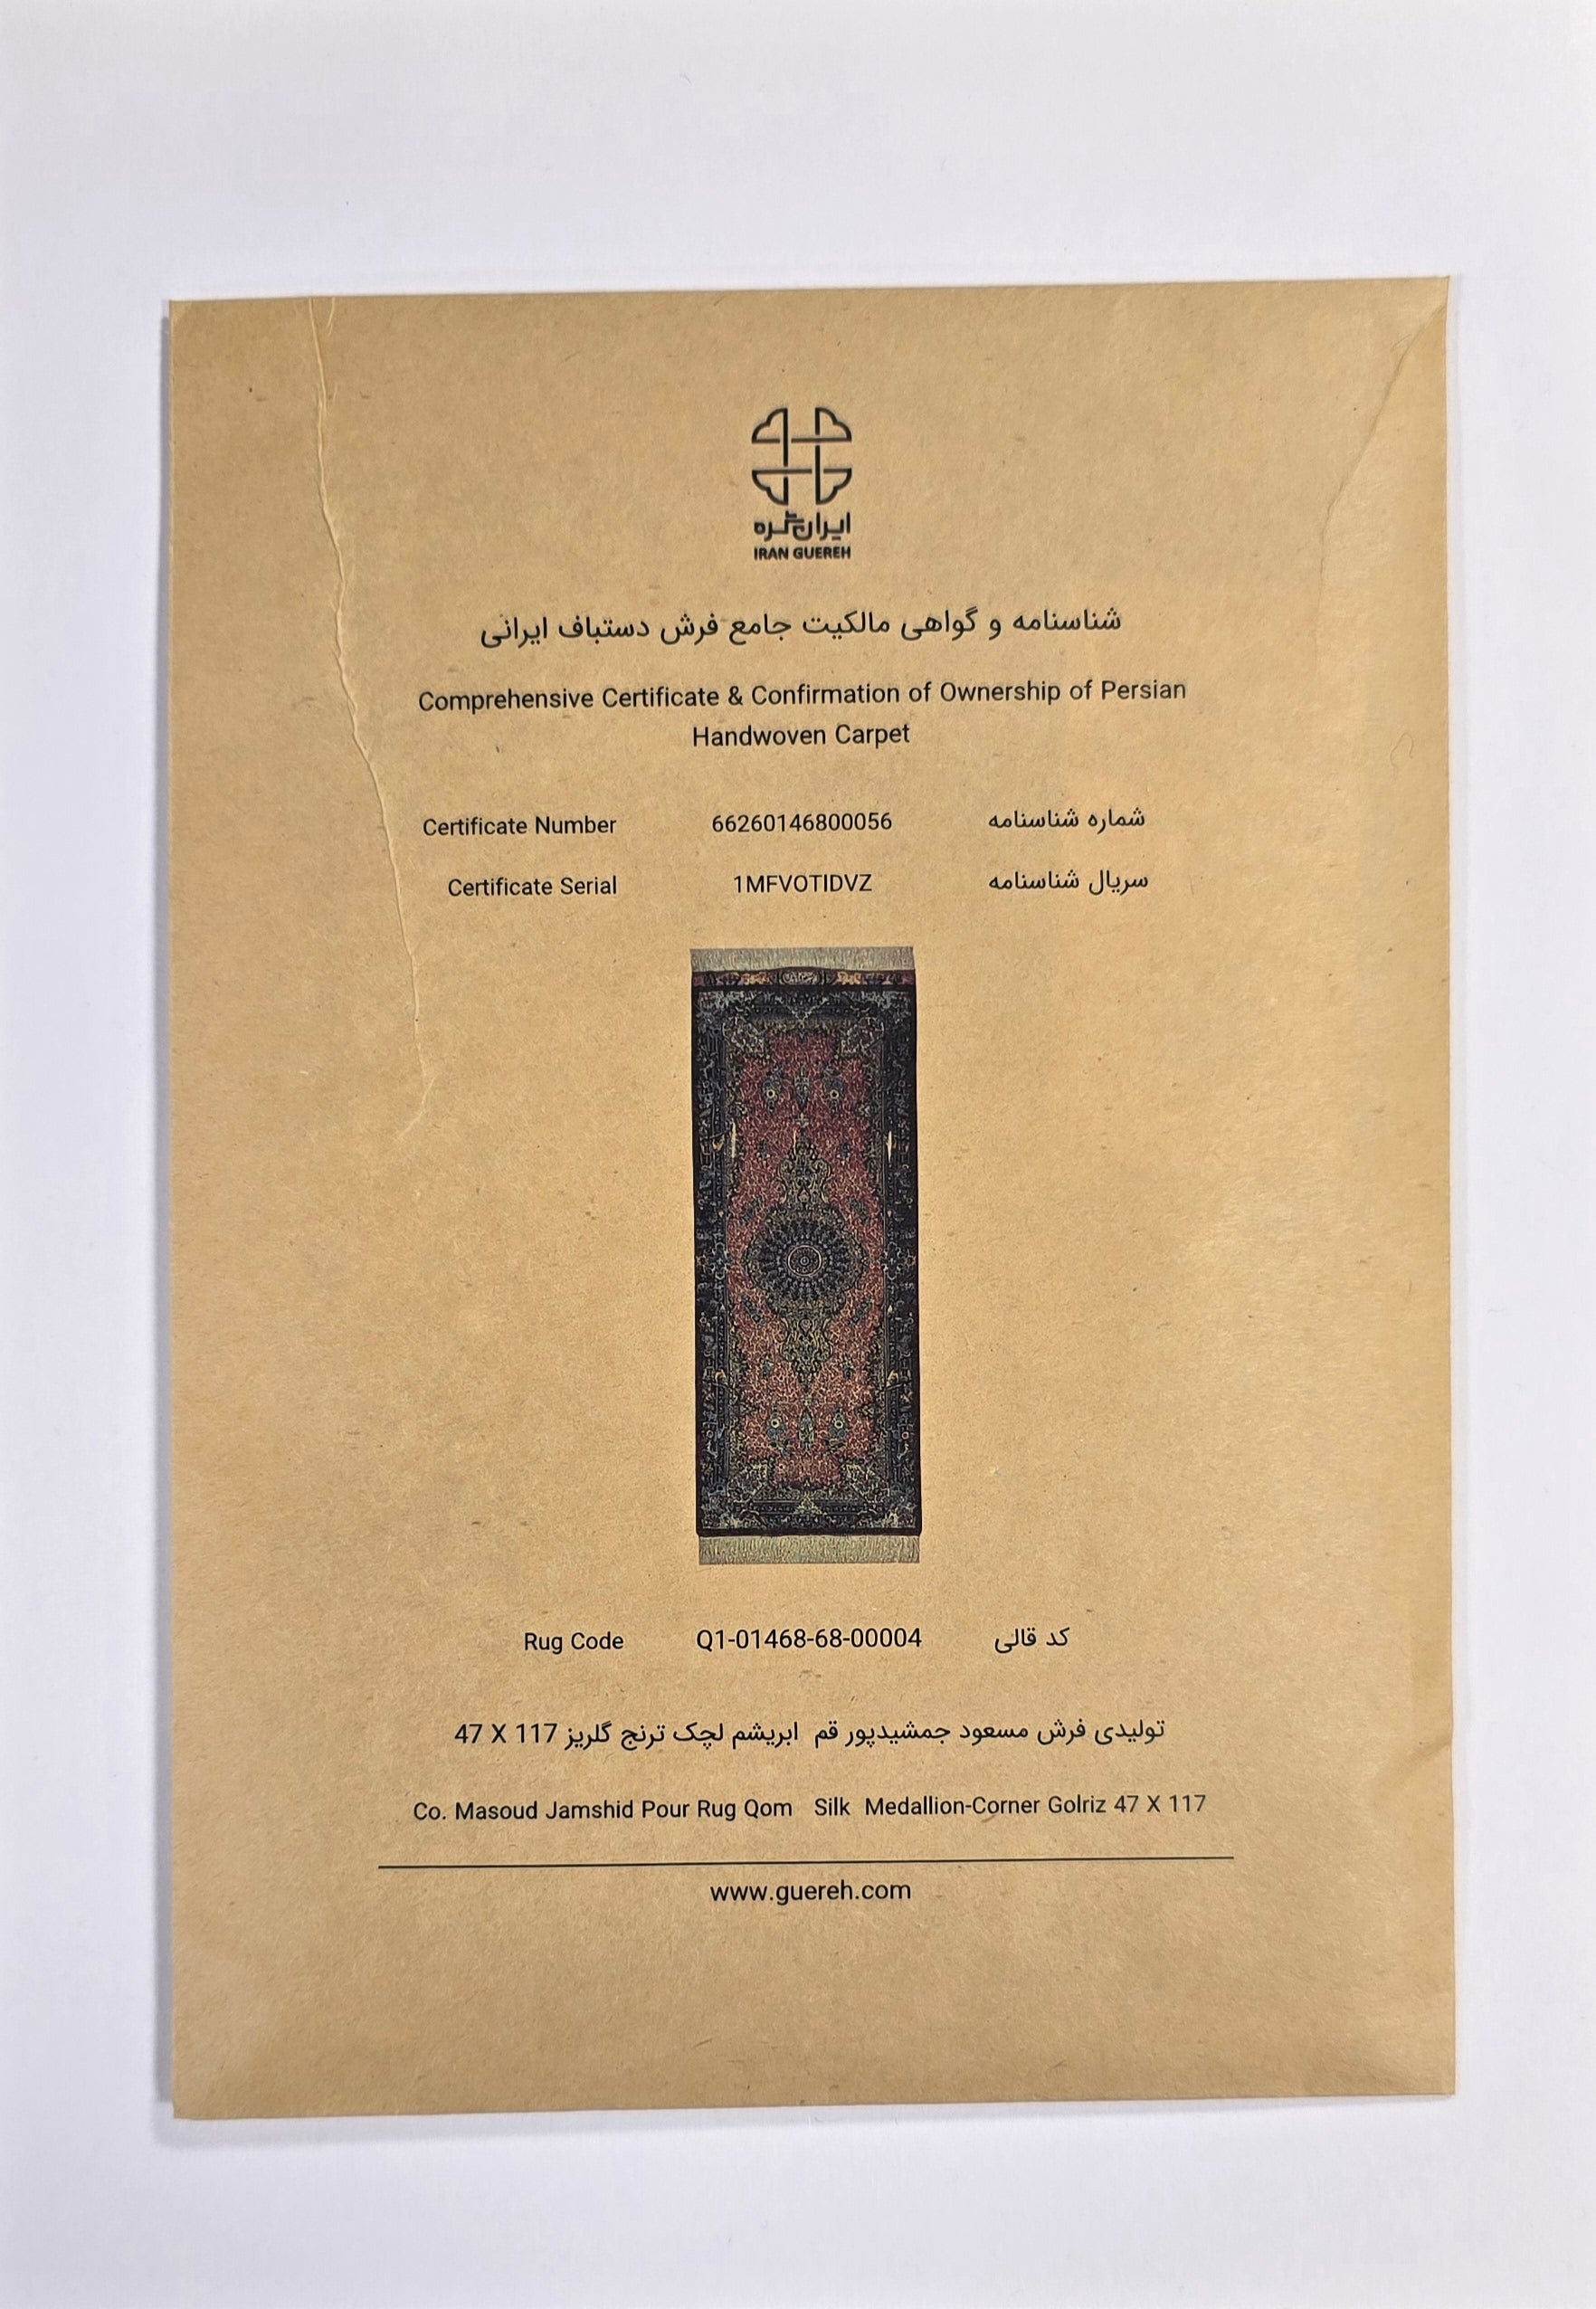 ایران گره
IRAN GUEREH
شناسنامه و گواهی مالکیت جامع فرش دستباف ایرانی
Comprehensive Certificate & Confirmation of Ownership of Persian
Handwoven Carpet
Certificate Number 66260146800056 شماره شناسنامه
Certificate Serial 1MFVOTIDVZ سریال شناسنامه
Rug Code Q1-01468-68-00004 کد قالی
تولیدی فرش مسعود جمشیدپور قم ابریشم لچک ترنج گلریز 117 X 47
Co. Masoud Jamshid Pour Rug Qom Silk Medallion-Corner Golriz 47 X 117
www.guereh.com